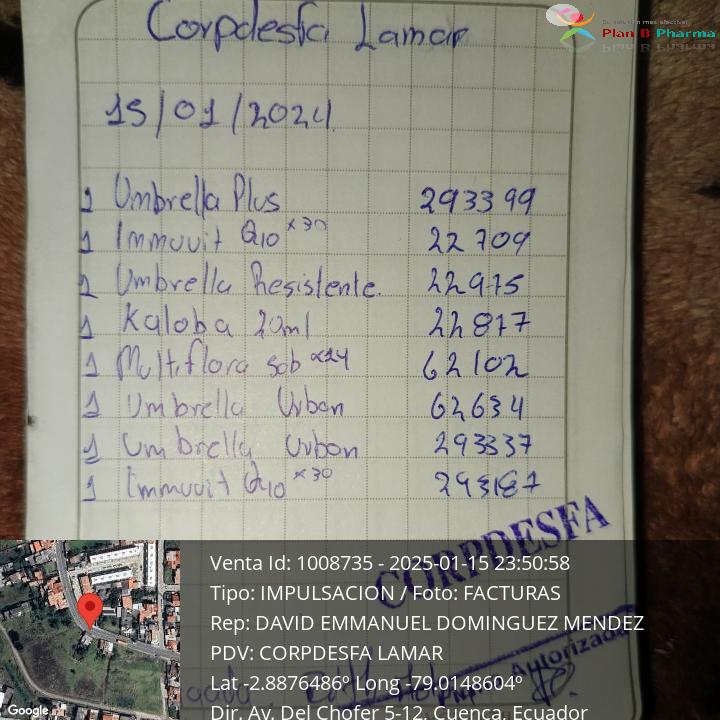 Corpdesfa Lamar
Plan B Pharma
15/01/2024
1 Umbrella Plus 293399
1 Immuvit Q10 x30 22709
1 Umbrella Resistente. 22975
1 Kaloba 20ml 22877
1 Multiflora sob x14 62102
1 Umbrella Urban 62634
1 Umbrella Urban 293337
1 Immuvit Q10 x30 293187
CORPDESFA
Autorizada
Venta Id: 1008735 - 2025-01-15 23:50:58
Tipo: IMPULSACION / Foto: FACTURAS
Rep: DAVID EMMANUEL DOMINGUEZ MENDEZ
PDV: CORPDESFA LAMAR
Lat -2.8876486º Long -79.0148604º
Dir. Av. Del Chofer 5-12, Cuenca, Ecuador
Google